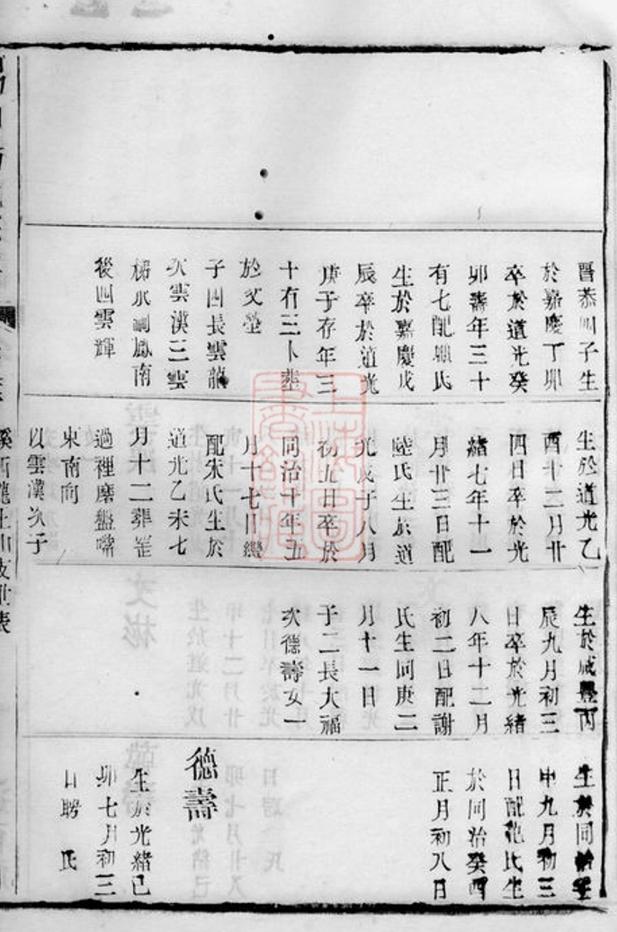 晋恭四子生
於嘉慶丁卯
卒於道光癸
卯壽年三十
有七配顧氏
生於嘉慶戊
辰卒於道光
庚子存年三
十有三卜葬
於父塋
子四長雲龍
次雲漢三雲
梯永嗣鳳南
後四雲輝
生於道光乙
酉十二月廿
四日卒於光
緒七年十一
月廿三日配
陸氏生於道
光戊子八月
初五日卒於
同治十年五
月十七日繼
配宋氏生於
道光乙未七
月十二葬崑
過裡磨盤嘴
東南向
以雲漢次子
生於咸豐丙
辰九月初三
日卒於光緒
八年十二月
初二日配謝
氏生同庚二
月十一日
子二長大福
次德壽女一
生於同治壬
申九月初三
日配范氏生
於同治癸酉
正月初八日
德壽
生於光緒己
卯七月初三
日聘 氏
溪西龍土山支世表